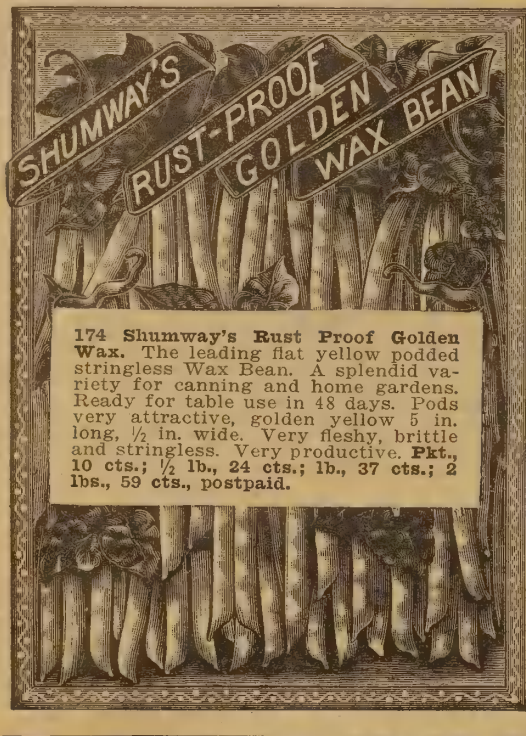 SHUMWAY'S
RUST-PROOF
GOLDEN
WAX BEAN
174 Shumway's Rust Proof Golden
Wax. The leading flat yellow podded
stringless Wax Bean. A splendid va-
riety for canning and home gardens.
Ready for table use in 48 days. Pods
very attractive, golden yellow 5 in.
long, ½ in. wide. Very fleshy, brittle
and stringless. Very productive. Pkt.,
10 cts.; ½ lb., 24 cts.; lb., 37 cts.; 2
lbs., 59 cts., postpaid.